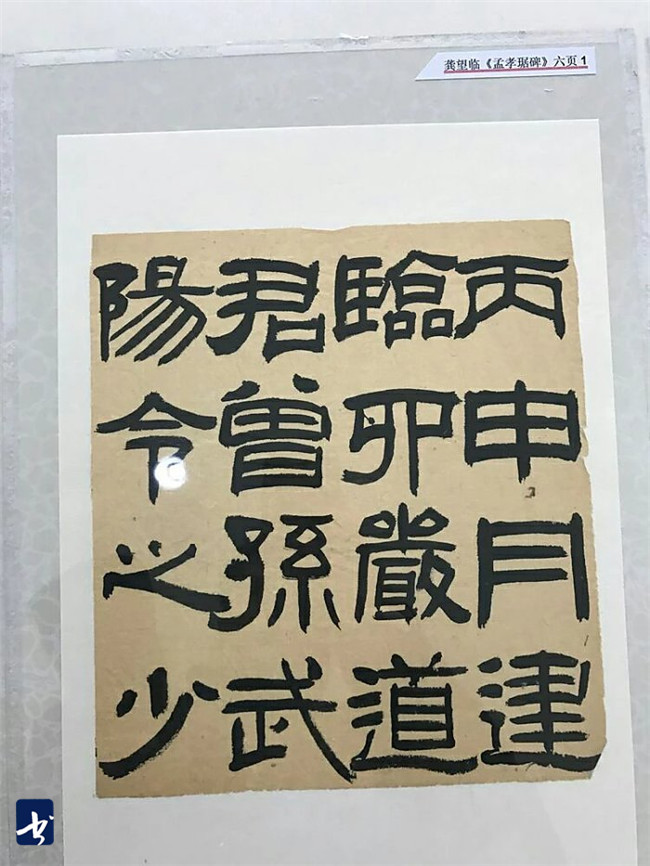 龚望临《孟孝琚碑》六页1
丙申月建
臨卯嚴道
君曾孫武
陽令之少
书